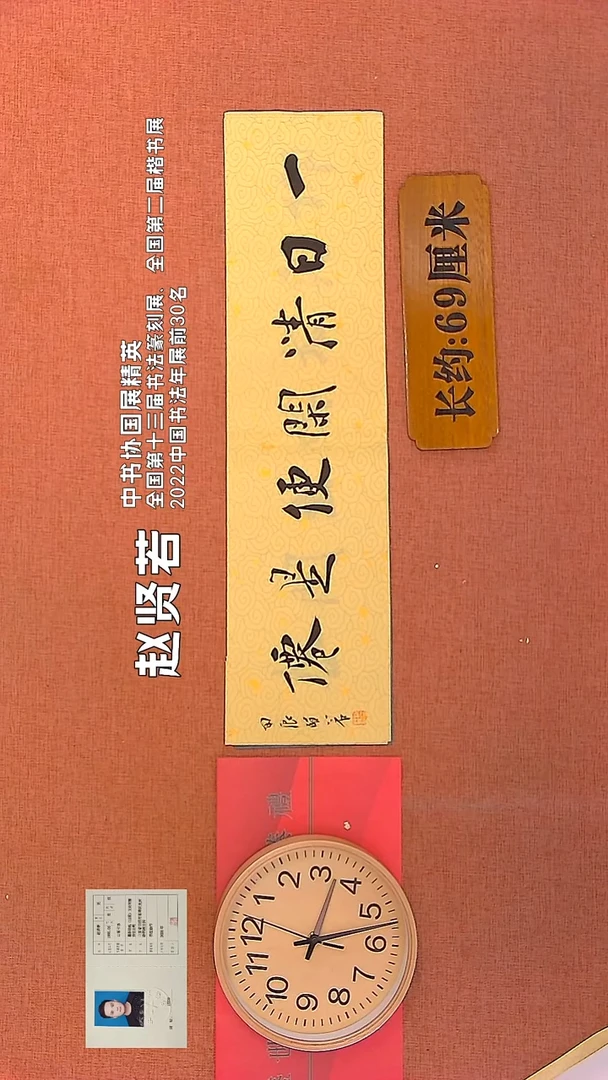 赵贤若
中书协国展精英
全国第十三届书法篆刻展、全国第二届楷书展
2022中国书法年展前30名
一日清閑便是僊
长约:69厘米
12
1
2
3
4
5
6
7
8
9
10
11